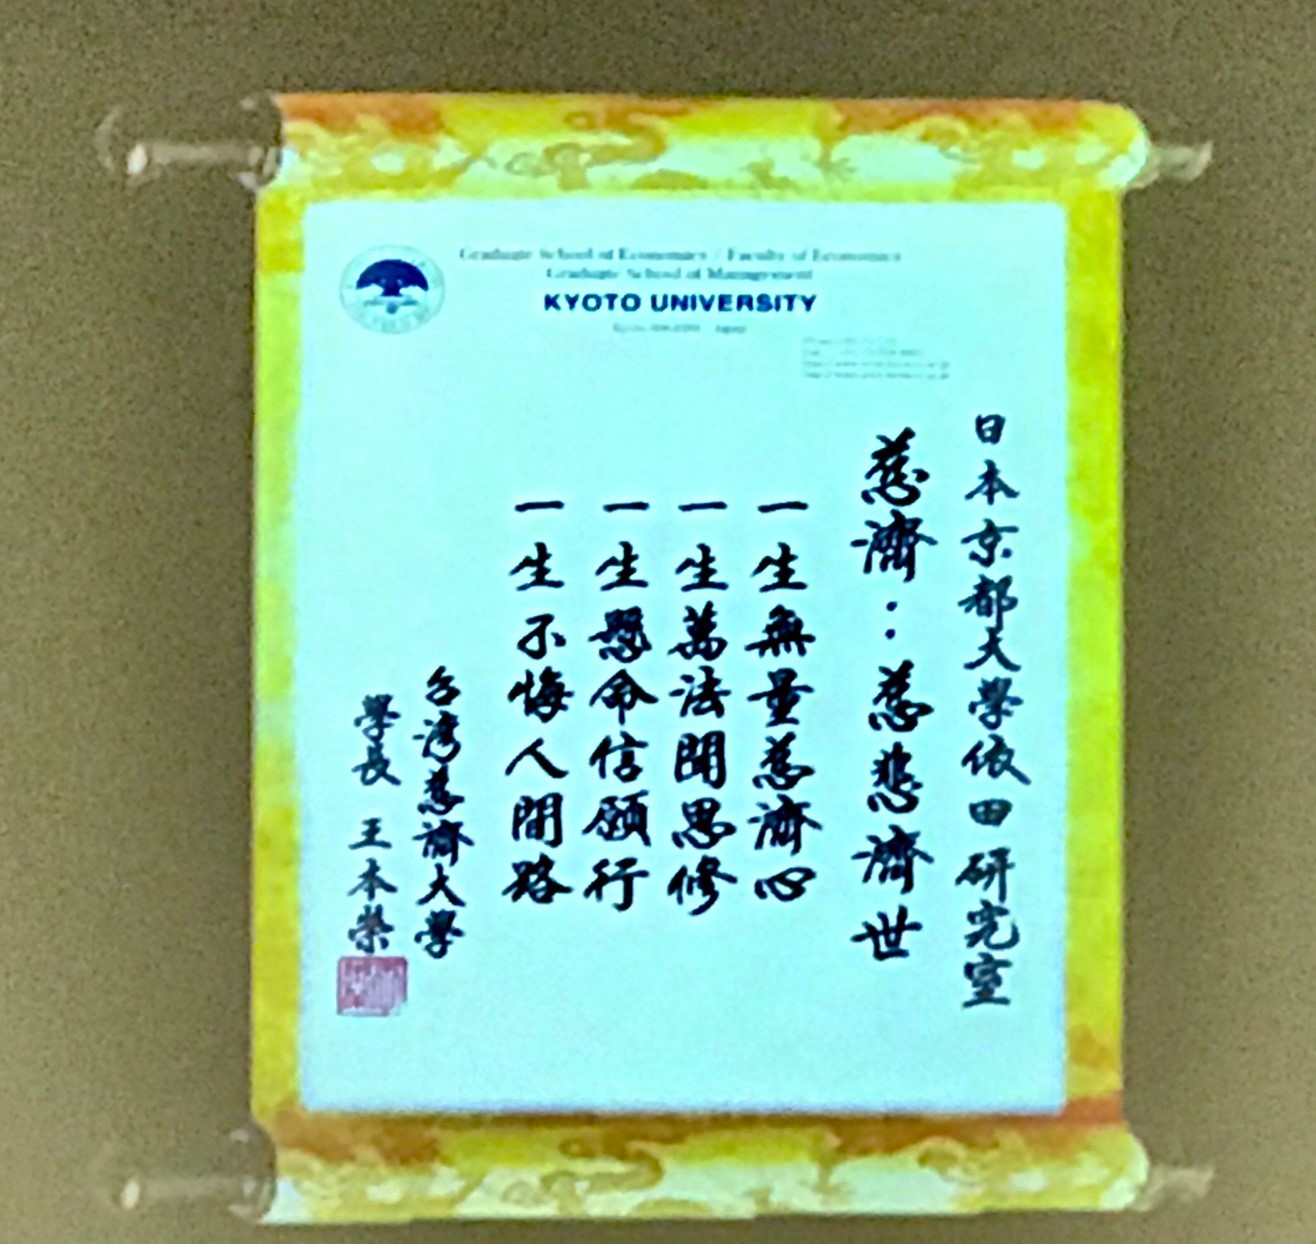 Graduate School of Economics / Faculty of Economics
Graduate School of Management
KYOTO UNIVERSITY
日本京都大學依田研究室
慈濟：慈悲濟世
一生無量慈濟心
一生萬法聞思修
一生懸命信願行
一生不悔人間路
台灣慈濟大學
學長 王本榮